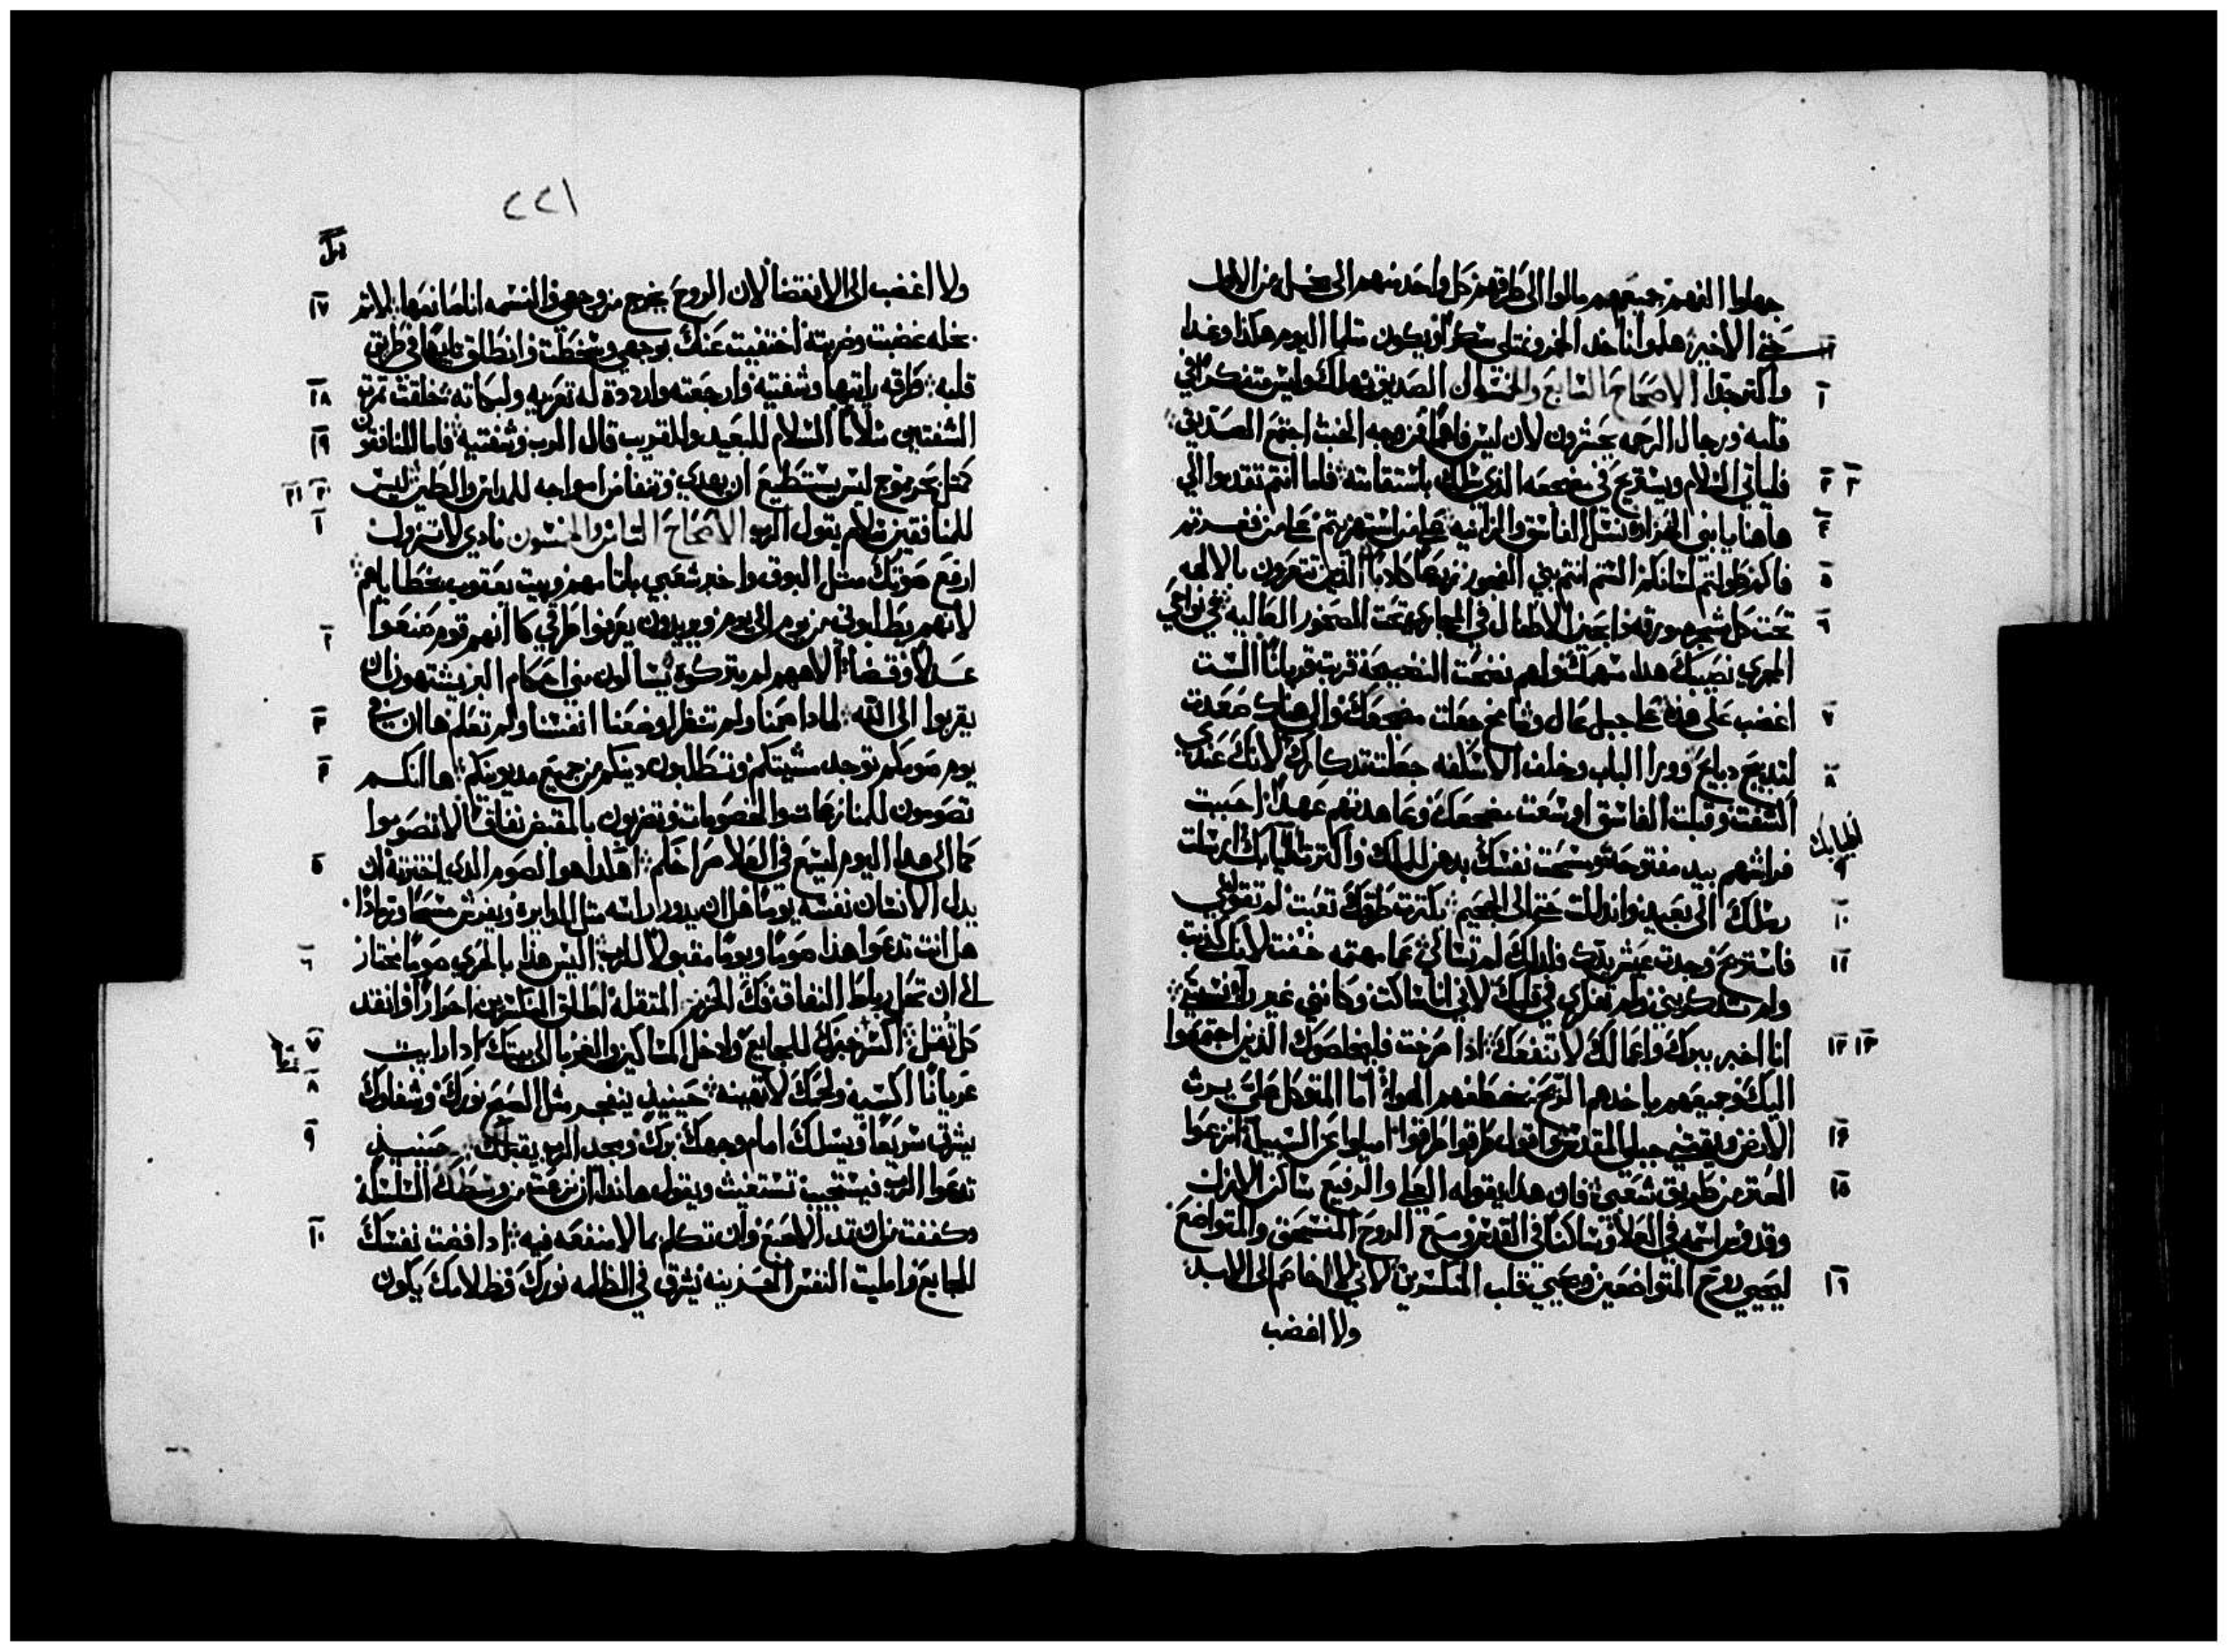 جهلوا الفهم جميعهم مالوا الى طرقهم كل واحد منهم الى بخله من الاول
حتى الاخير هلموا ناخد الخمر ونمتلى سكرا ويكون مثلما اليوم هكذا وغدا
١٢
واكتر جدا الاصحاح السابع والخمسون الصديق يهلك وليس متفكرا في
١
قلبه ورجال الرحمه يحشرون لان ليس فاهما من وجه الخبث اجتمع الصديق
فلياتي السلام ويستريح في مضجعه الذي سلك باستقامته فاما انتم تقدموا الي
٢ ٣
هاهنا يا بني الغزاه نسل الفاسق والزانيه على من استهزيتم على من فغرتم
٤
فاكم وطولتم لسانكم الستم انتم بني الفجور زرعا كادبا الذين تتعزون بالالهه
٥
تحت كل شجره مورقه ذابحين الاطفال في المجاري تحت الصخور العاليه في نواحي
٦
المجري نصيبك هذا سهمك ولهم نضحت النضيحه قربت قربانا الست
اغضب على هذه على جبل عال وشامخ جعلت مضجعك والى هناك صعدت
٧
لتدبحي دبايح وورا الباب وخلف الاسكفه جعلت تدكارك لانك عندي
٨
الشفت وقبلت الفاسق اوسعت مضجعك وعاهدتهم عهدا احببت
فراشهم بيد مفتوحه ومسحت نفسك بدهن للملك واكترت اطيابك ارسلت
اطيابك
٩
رسلك الى بعيد واندللت حتى الى الجحيم بكترت طرقك تعبت لم تقولي
١٠
فاستريح وجدت عيش يدك فلدلك لم تسالي عما مهتمه خفت لانك كدبت
١١
ولم تدكريني ولم تفكري في قلبك لاني انا ساكت وكانني غير راى نسيتي
انا اخبر ببرك واعمالك لا تنفعك اذا صرخت فليخلصوك الذين اجتمعوا
١٢ ١٣
اليك وجميعهم ياخدهم الريح يخطفهم الهوا اما المتوكل علي يرث
الارض ويقتني جبلي المقدس واقول طرقوا طرقوا اميلوا عن السبيل انزعوا
١٤
العتر من طريق شعبي فان هذا يقوله العلي والرفيع ساكن الازل
١٥
وقدوس اسمه في العلا وساكنا في القدس ومع الروح المنسحق والمتواضع
ليحيي روح المتواضعين ويحيي قلب المنكسرين لاني لا اخاصم الى الابد
١٦
ولا اغضب
٢٢١
ولا اغضب الى الانقضا لان الروح يخرج من وجهي والنسمه انا صانعها لاتم
١٧
بخله غضبت وضربته اختفيت عنك بوجهي وسخطت وانطلق تايها في طريق
قلبه طرقه رايتها وشفيته وارجعته وارددة له تعزيه ولبكاته خلقت تمرة
١٨
الشفتين سلاما السلام للبعيد والقريب قال الرب وشفتيه فاما المنافقون
١٩
كمتل بحر يموج ليس يستطيع ان يهدي وتتفاض امواجه للدايس والطين ليس
٢٠ ٢١
للمنافقين سلام يقول الرب الاصحاح التامن والخمسون نادي لا تزول
١
ارفع صوتك مثل البوق واخبر شعبي باتامهم وبيت يعقوب بخطاياهم
لانهم يطلبوني من يوم الى يوم ويريدون يعرفوا طرقي كا انهم قوم صنعوا
٢
عدلا وقضا الاههم لم يتركوه يسالون مني احكام البر يشتهون ان
يقربوا الى الله لمادا صمنا ولم تنظر اوضعنا انفسنا ولم تعلم ها ان في
٣
يوم صومكم توجد مشيتكم وتطلبون دينكم من جميع مديونيكم ها انكم
٤
تصومون للمنازعات والخصومات وتضربون بالقبض نفاقا لا تصوموا
كما الى هدا اليوم ليسمع في العلا صراخكم اهكدا هو الصوم الدي اخترته ان
٥
يدل الانسان نفسه يوما هل ان يدور راسه متل الدايره ويفرش مسحا ورمادا
هل انت تدعوا هذا صوما ويوما مقبولا للرب اليس هذا بالحري صوما نختار
٦
لي ان تحل رباط النفاق فك الحزم المتقله اطلق المنكسرين احرارا وانقد
كل تقل اكسر خبزك للجايع وادخل المساكين والغربا الى بيتك ادا رايت
٧
عريانا اكسيه ولحمك لا تهينه حينيدٍ ينفجر مثل السحر نورك وشفاوك
٨
يشرق سريعا ويسلك امام وجهك برك ومجد الرب يقبلك حينيدٍ
٩
تدعوا الرب فيستجيب تستغيث ويقول هاندا ان نزعت من وسطك السلسلة
وكففت من ان تمد الاصبع وان تتكلم بما لا منفعه فيه ادا افضت نفسك
١٠
للجايع واملیت النفس الحزينه يشرق في الظلمه نورك وظلامك يكون